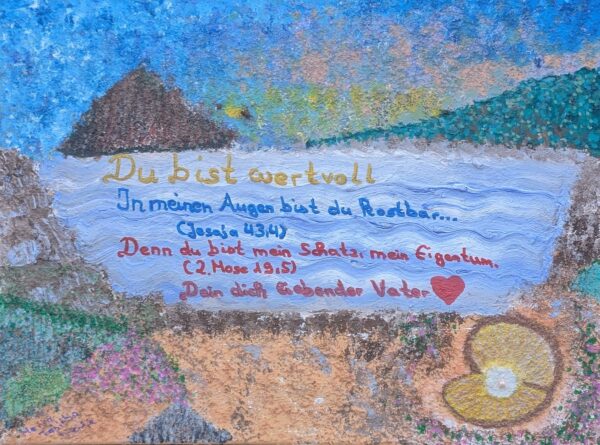 Du bist wertvoll
In meinen Augen bist du kostbar...
(Jesaja 43,4)
Denn du bist mein Schatz, mein Eigentum.
(2. Mose 19,5)
Dein dich liebender Vater